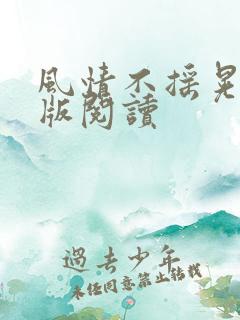 風情不搖晃
版閱讀
過去少年
未經同意禁止轉載